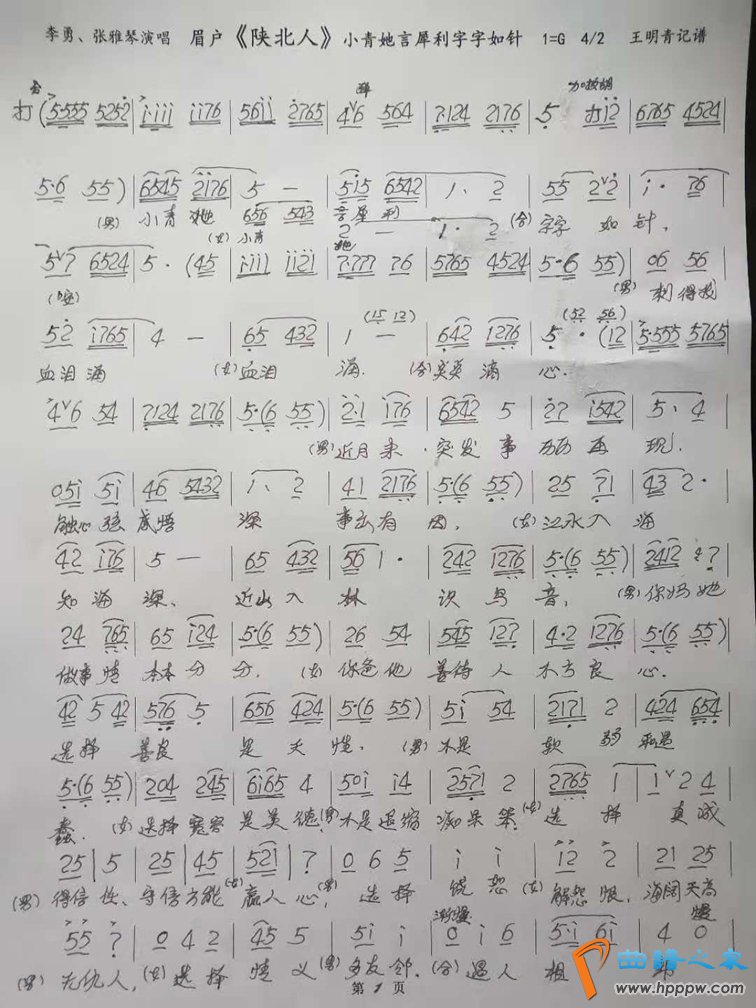 李勇、张雅琴演唱 眉户《陕北人》小青她言犀利字字如针 1=G 4/2 王明青记谱
打(5·555 5252 | i·iii ii76 | 56ii 2765 | 4∨6 564 | 7·124 2176 | 5 打i2 | 6765 4524
5·6 55) | 6545 2176 | 5 — | 5i5 6542 | 1· 2 | 55 2∨2 | i· 76
(男) 小青她 言犀利 (合) 字字 如针,
656 543 2 — 1· 2
(女) 小青 她
5∨7 6524 | 5·(45 | i·iii ii2i | 7·777 76 | 5765 4524 | 5·6 55) | 06 56
(男) 刺得我
52 i765 | 4 — | 65 432 | 1 — | 642 1276 | 5·(12 | 5·555 5765
(15 12) (52 56)
血泪淌 (女) 血泪 淌. (合) 滴 心.
4∨6 54 | 7124 2176 | 5·(6 55) | 2·1 i76 | 6542 5 | 27 i542 | 5· 4
(男) 近月来·突发事 历历再 现.
05i 5i | 46 5432 | 1· 2 | 41 2176 | 5·(6 55) | 25 71 | 43 2·
触心弦感悟 深 事出有因, (女) 江水入 海
42 i76 | 5 — | 65 432 | 56 1· | 242 1276 | 5·(6 55) | 2412 4·7
知海深、 近山入 林 识鸟 音, (男) 你妈她
24 765 | 65 i24 | 5·(6 55) | 26 54 | 545 127 | 4·2 1276 | 5·(6 55)
做事情 本本分 分. (女) 你爸他 善待人 不亏良 心.
42 5 42 | 576 5 | 656 424 | 5·(6 55) | 5i 54 | 2171 2 | 424 654
选择 善良 是天 性. (男) 不是 软 弱
5·(6 55) | 204 245 | 6i65 4 | 50i i4 | 2571 2 | 2765 1 | 1∨2 4
蠢. (女) 选择宽容 是美德 (男) 不是退缩 痴呆笨. (女) 选 择 真诚
25 | 5 | 25 | 45 | 521 | 7 | 0 6 5 | i i | i2 2 | 21 25
(男) 得信 任、守信方能 (女) 赢人 心, (男) 选择 饶恕 (女) 解怨 恨, 海阔天高
渐慢 慢
55 7 | 0 4 2 | 45 5 | 5i i | 0 i 6 | 5·i 6i | 4 0
(男) 无仇人, (女) 选择 情义 (男) 多友邻. (合) 遇人
第 1 页
曲谱之家
www.hpppw.com